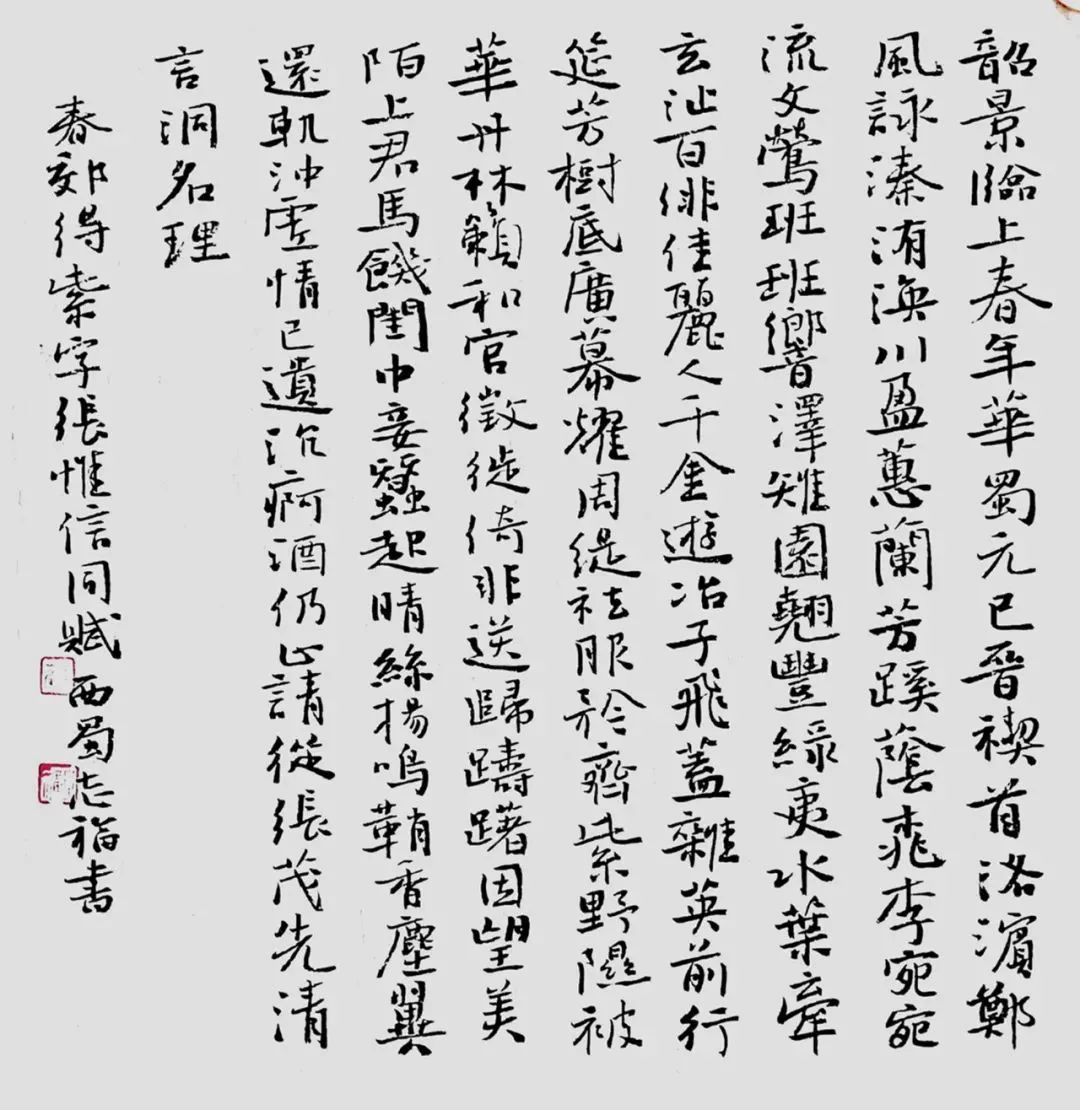 韶景臨上春年華蜀元巳晉禊首洛濱鄭
風詠溱洧渙川盈蕙蘭芳蹊蔭桃李宛宛
流文鶯班班響澤雉園翹豐綠荑水葉牽
玄沚百俳佳麗人千金遊冶子飛蓋雜英前行
筵芳樹底廣幕耀周緹袨服矜齊紫野隰被
華丹林籟和宮徵徙倚非送歸躊躇因望美
陌上君馬饑閨中妾蠶起晴絲揚鳴鞘香塵翼
還軌沖虛情已遺沉痾酒仍止請從張茂先清
言洞名理
春郊得紫字張惟信同賦西蜀志福書